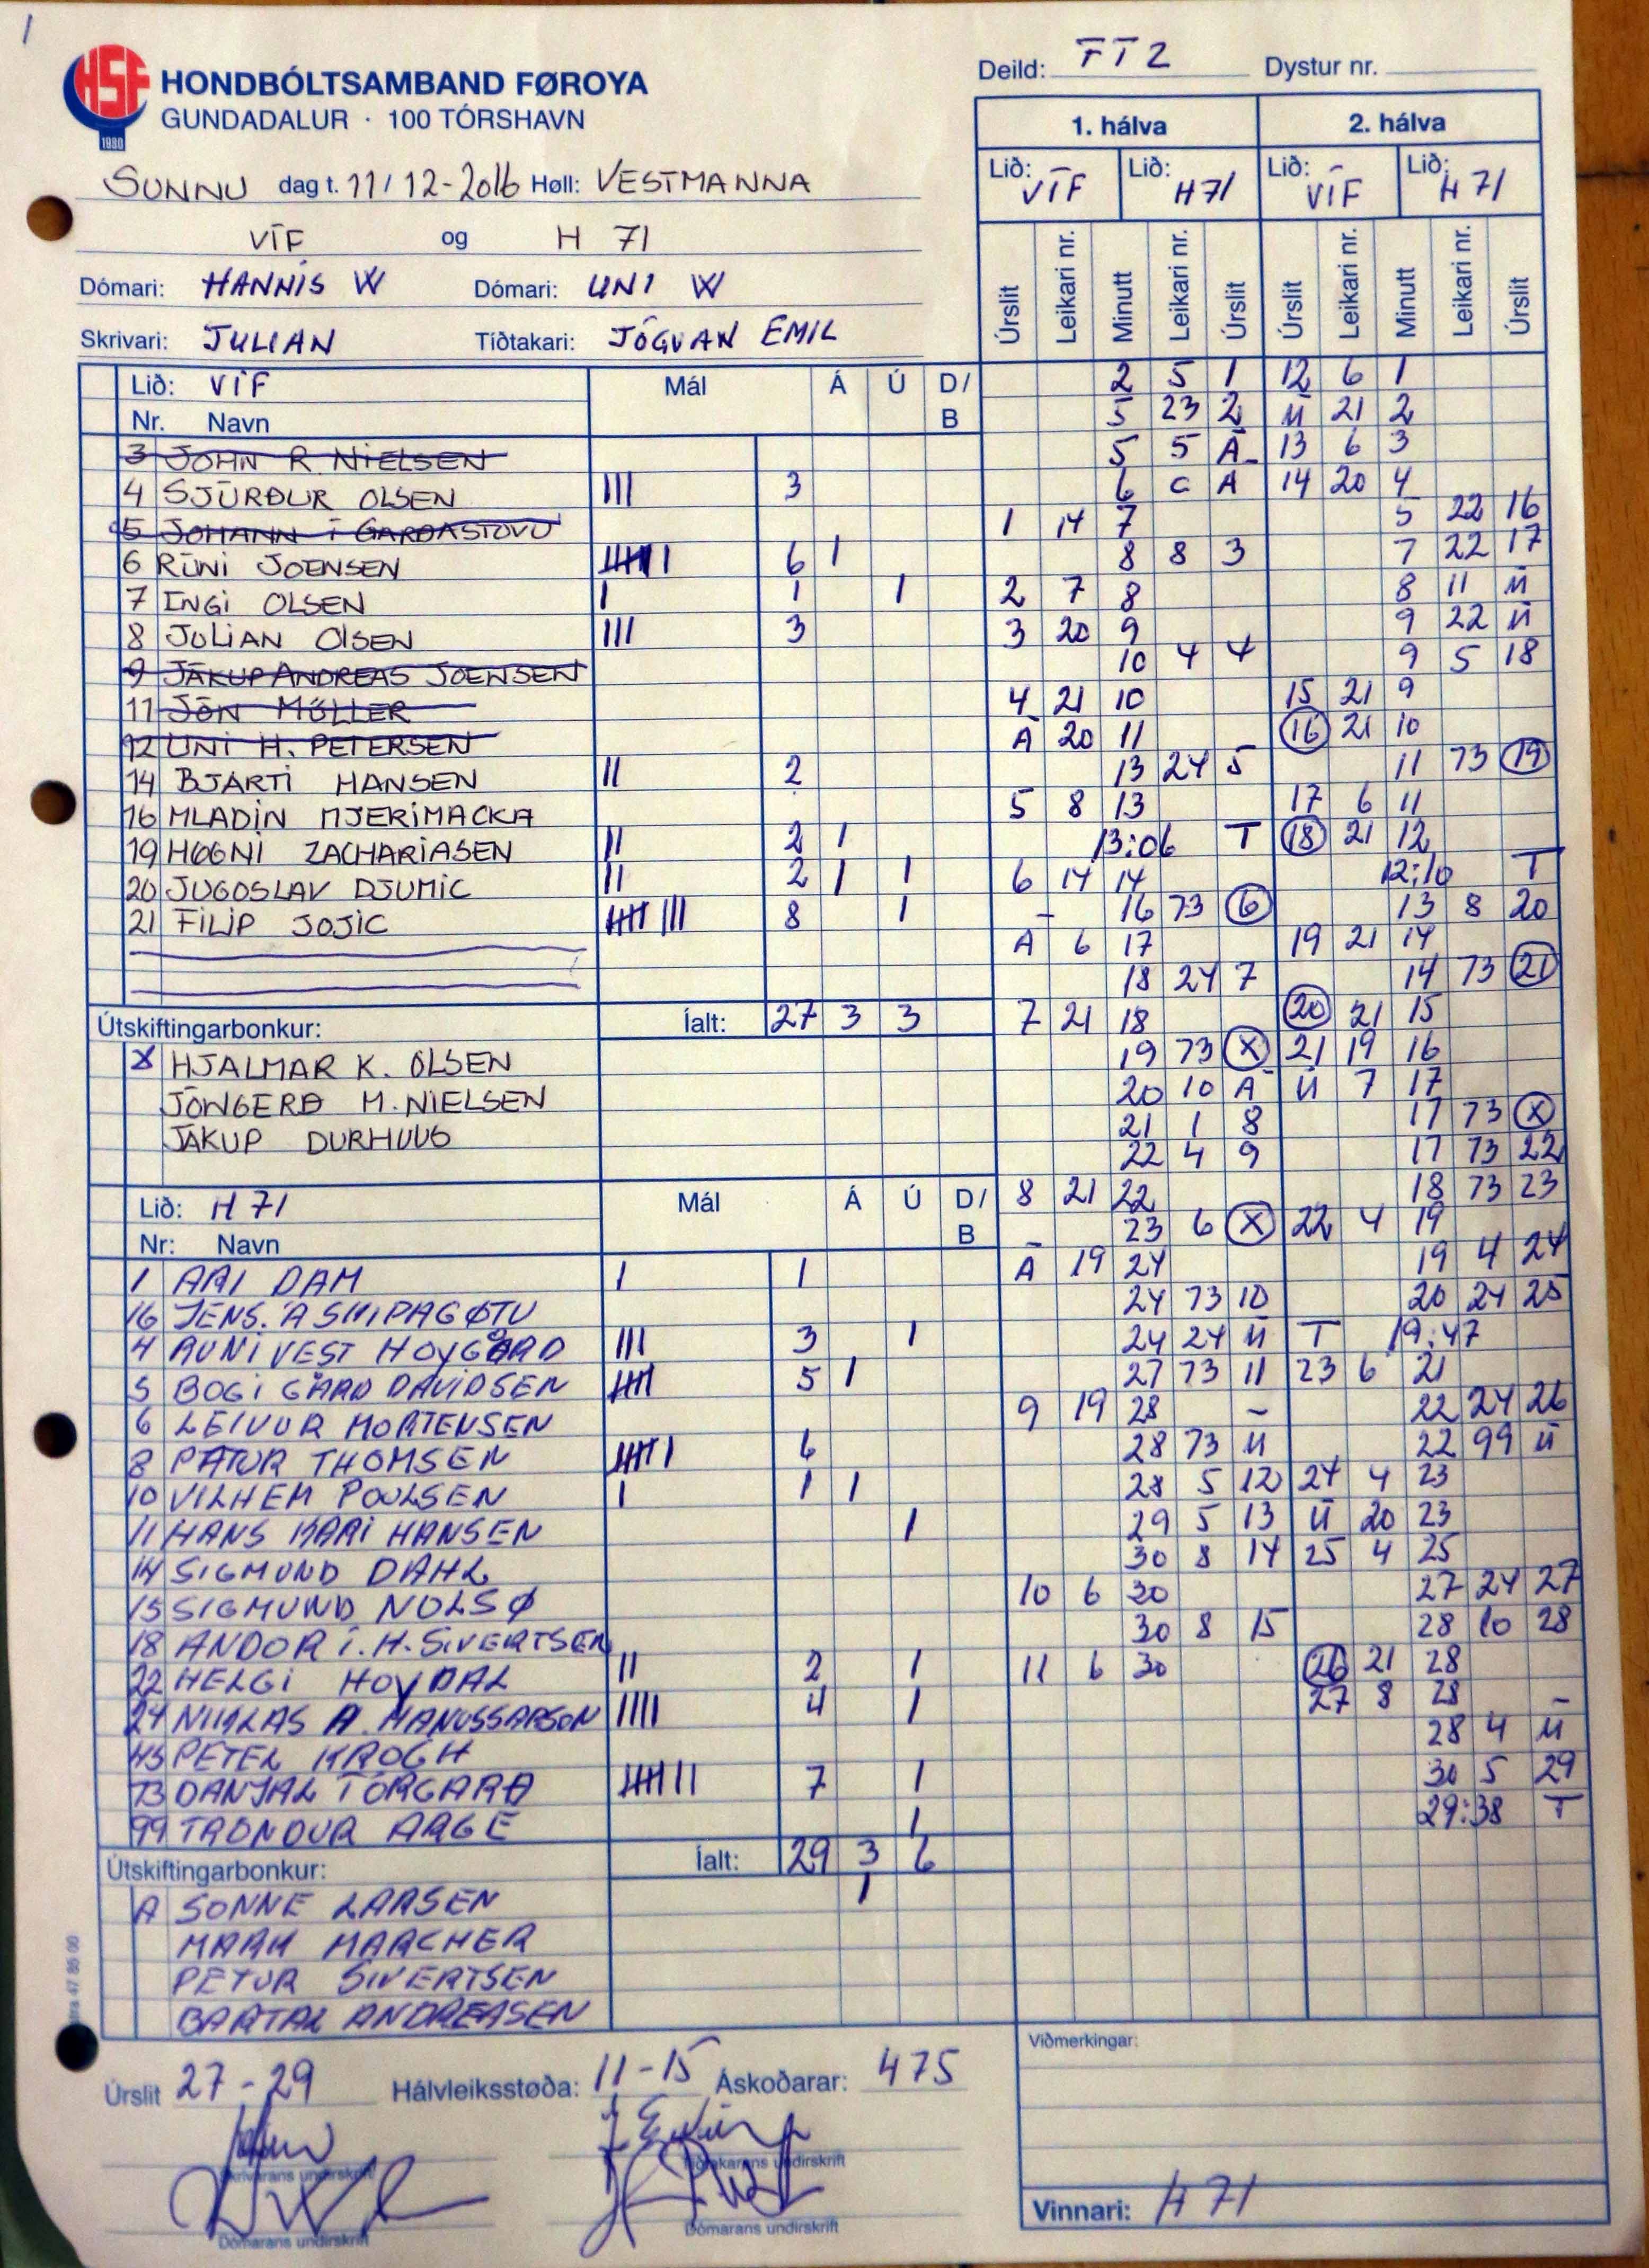 1
HSF
1980
HONDBÓLTSAMBAND FØROYA
GUNDADALUR · 100 TÓRSHAVN
Deild: FT 2 Dystur nr.
SUNNU dag t. 11/12-2016 Høll: VESTMANNA
VÍF og H 71
Dómari: HANNIS W Dómari: UNI W
Skrivari: JULIAN Tíðtakari: JÓGVAN EMIL
1. hálva 2. hálva
Lið: VÍF Lið: H 71 Lið: VÍF Lið: H 71
Úrslit Leikari nr. Minutt Leikari nr. Úrslit Úrslit Leikari nr. Minutt Leikari nr. Úrslit
Lið: VÍF Mál Á Ú D/B
Nr. Navn
3 JOHN R NIELSEN
4 SJÚRÐUR OLSEN III 3
5 JOHANN Í GARÐASTOVU
6 RÚNI JOENSEN IIIII I 6 1
7 INGI OLSEN I 1 1
8 JULIAN OLSEN III 3
9 JÁKUP ANDREAS JOENSEN
11 JÓN MÜLLER
12 UNI H. PETERSEN
14 BJARTI HANSEN II 2
16 MLADIN MJERIMACKA
19 HØGNI ZACHARIASEN II 2 1
20 JUGOSLAV DJUMIC II 2 1 1
21 FILIP JOJIC IIIII III 8 1
Íalt: 27 3 3
Útskiftingarbonkur:
X HJALMAR K. OLSEN
JÓNGERÐ M. NIELSEN
JÁKUP DURHUUS
Lið: H 71 Mál Á Ú D/B
Nr: Navn
1 ARI DAM I 1
16 JENS. Á SKIPAGØTU
4 RUNI VEST HOYGÅRD III 3 1
5 BOGI GÅRD DAVIDSEN IIIII 5 1
6 LEIVUR MORTENSEN
8 PÆTUR THOMSEN IIIII I 6
10 VILHEM POULSEN I 1 1
11 HANS KÁRI HANSEN 1
14 SIGMUND DAHL
15 SIGMUND NOLSØ
18 ANDOR Í. H. SIVERTSEN
22 HELGI HOYDAL II 2 1
24 NIKLAS A. MANUSSARSON IIII 4 1
43 PETER KROGH
73 DANJAL TORGARÐ IIIII II 7 1
99 TRONDUR ARGE 1
Íalt: 29 3 6
Útskiftingarbonkur:
A SONNE LARSEN 1
MARK MARCHER
PETUR SIVERTSEN
BARTAL ANDREASEN
2 5 1 12 6 1
5 23 2 Ú 21 2
5 5 Á 13 6 3
6 C A 14 20 4
1 14 7 5 22 16
8 8 3 7 22 17
2 7 8 8 11 Ú
3 20 9 9 22 Ú
10 4 4 9 5 18
4 21 10 15 21 9
Á 20 11 16 21 10
13 24 5 11 73 19
5 8 13 17 6 11
13:06 T 18 21 12
6 14 14 12:10 T
- 16 73 6 13 8 20
Á 6 17 19 21 14
18 24 7 14 73 21
7 21 18 20 21 15
19 73 X 21 19 16
20 10 Á Ú 7 17
21 1 8 17 73 X
22 4 9 17 73 22
8 21 22 18 73 23
- 23 6 X 22 4 19
Á 19 24 19 4 24
24 73 10 20 24 25
24 24 Ú T 19:47
27 73 11 23 6 21
9 19 28 - 22 24 26
28 73 Ú 22 99 Ú
28 5 12 24 4 23
29 5 13 Ú 20 23
30 8 14 25 4 25
10 6 30 27 24 27
30 8 15 28 10 28
11 6 30 26 21 28
27 8 28 -
28 4 Ú
30 5 29
29:38 T
Úrslit 27-29 Hálvleiksstøða: 11-15 Áskoðarar: 475
Skrivarans undirskrift Tíðtakarans undirskrift
Dómarans undirskrift Dómarans undirskrift
Viðmerkingar:
Vinnari: H 71